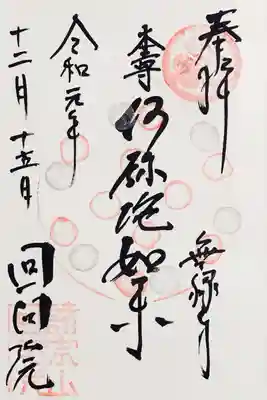 奉拝
無縁寺
本尊
阿弥陀如来
令和元年
十二月十五日
回向院
諸宗山